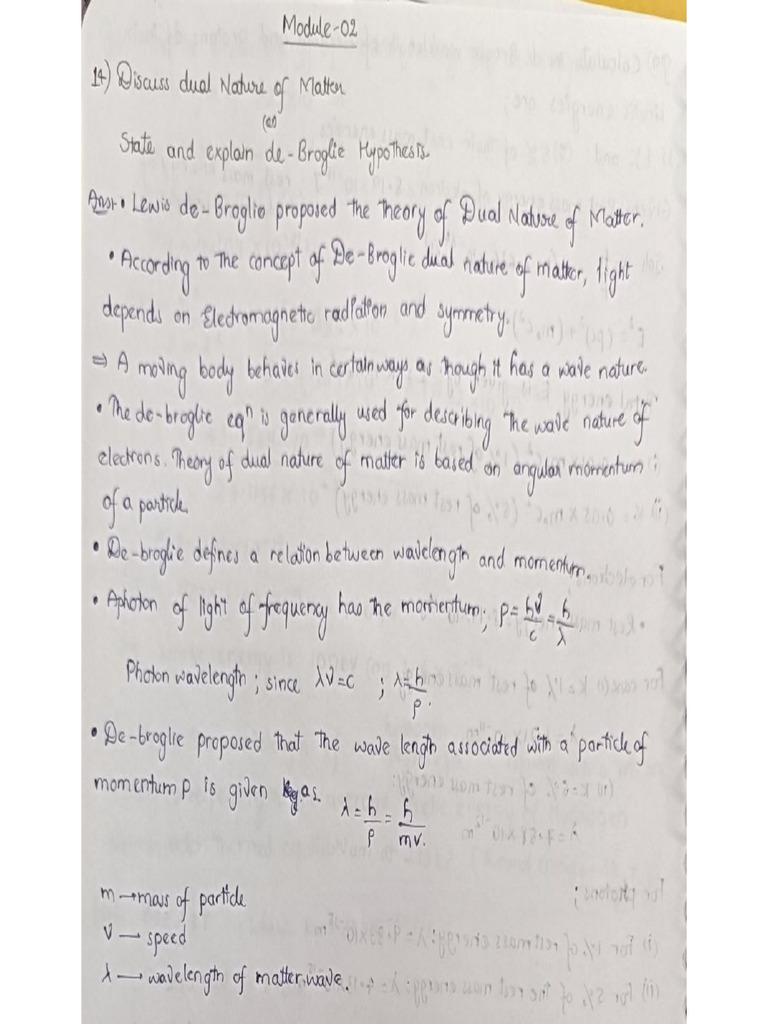 Module-02
14) Discuss dual Nature of Matter
(or)
State and explain de-Broglie Hypothesis.
Ans:- • Lewis de-Broglie proposed the theory of Dual Nature of Matter.
• According to the concept of De-Broglie dual nature of matter, light
depends on Electromagnetic radiation and symmetry.
⇒ A moving body behaves in certain ways as though it has a wave nature.
• The de-broglie eqn is generally used for describing the wave nature of
electrons. Theory of dual nature of matter is based on angular momentum
of a particle.
• De-broglie defines a relation between wavelength and momentum.
• A photon of light of frequency has the momentum; P = hν/c = h/λ
Photon wavelength; since λν=c ; λ=h/p.
• De-broglie proposed that the wave length associated with a particle of
momentum p is given as. λ = h/p = h/mv.
m → mass of particle
v — speed
λ — wavelength of matter wave.